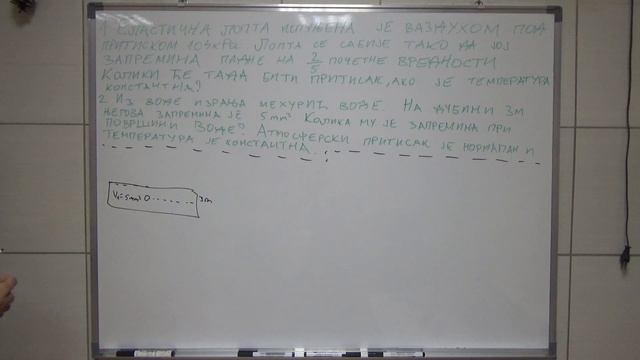 1 ЕЛАСТИЧНА ЛОПТА ИСПУЊЕНА ЈЕ ВАЗДУХОМ ПОД
ПРИТИСКОМ 105kPa. ЛОПТА СЕ САБИЈЕ ТАКО ДА ЈОЈ
ЗАПРЕМИНА ПАДНЕ НА 2/5 ПОЧЕТНЕ ВРЕДНОСТИ
КОЛИКИ ЋЕ ТАДА БИТИ ПРИТИСАК, АКО ЈЕ ТЕМПЕРАТУРА
КОНСТАНТНА?
2 ИЗ ВОДЕ ИЗРАЊА МЕХУРИЋ ВОДЕ. НА ДУБИНИ 3m
ЊЕГОВА ЗАПРЕМИНА ЈЕ 5mm³ КОЛИКА МУ ЈЕ ЗАПРЕМИНА ПРИ
ПОВРШИНИ ВОДЕ? АТМОСФЕРСКИ ПРИТИСАК ЈЕ НОРМАЛАН И
ТЕМПЕРАТУРА ЈЕ КОНСТАНТНА.
V₁=5mm³ 3m